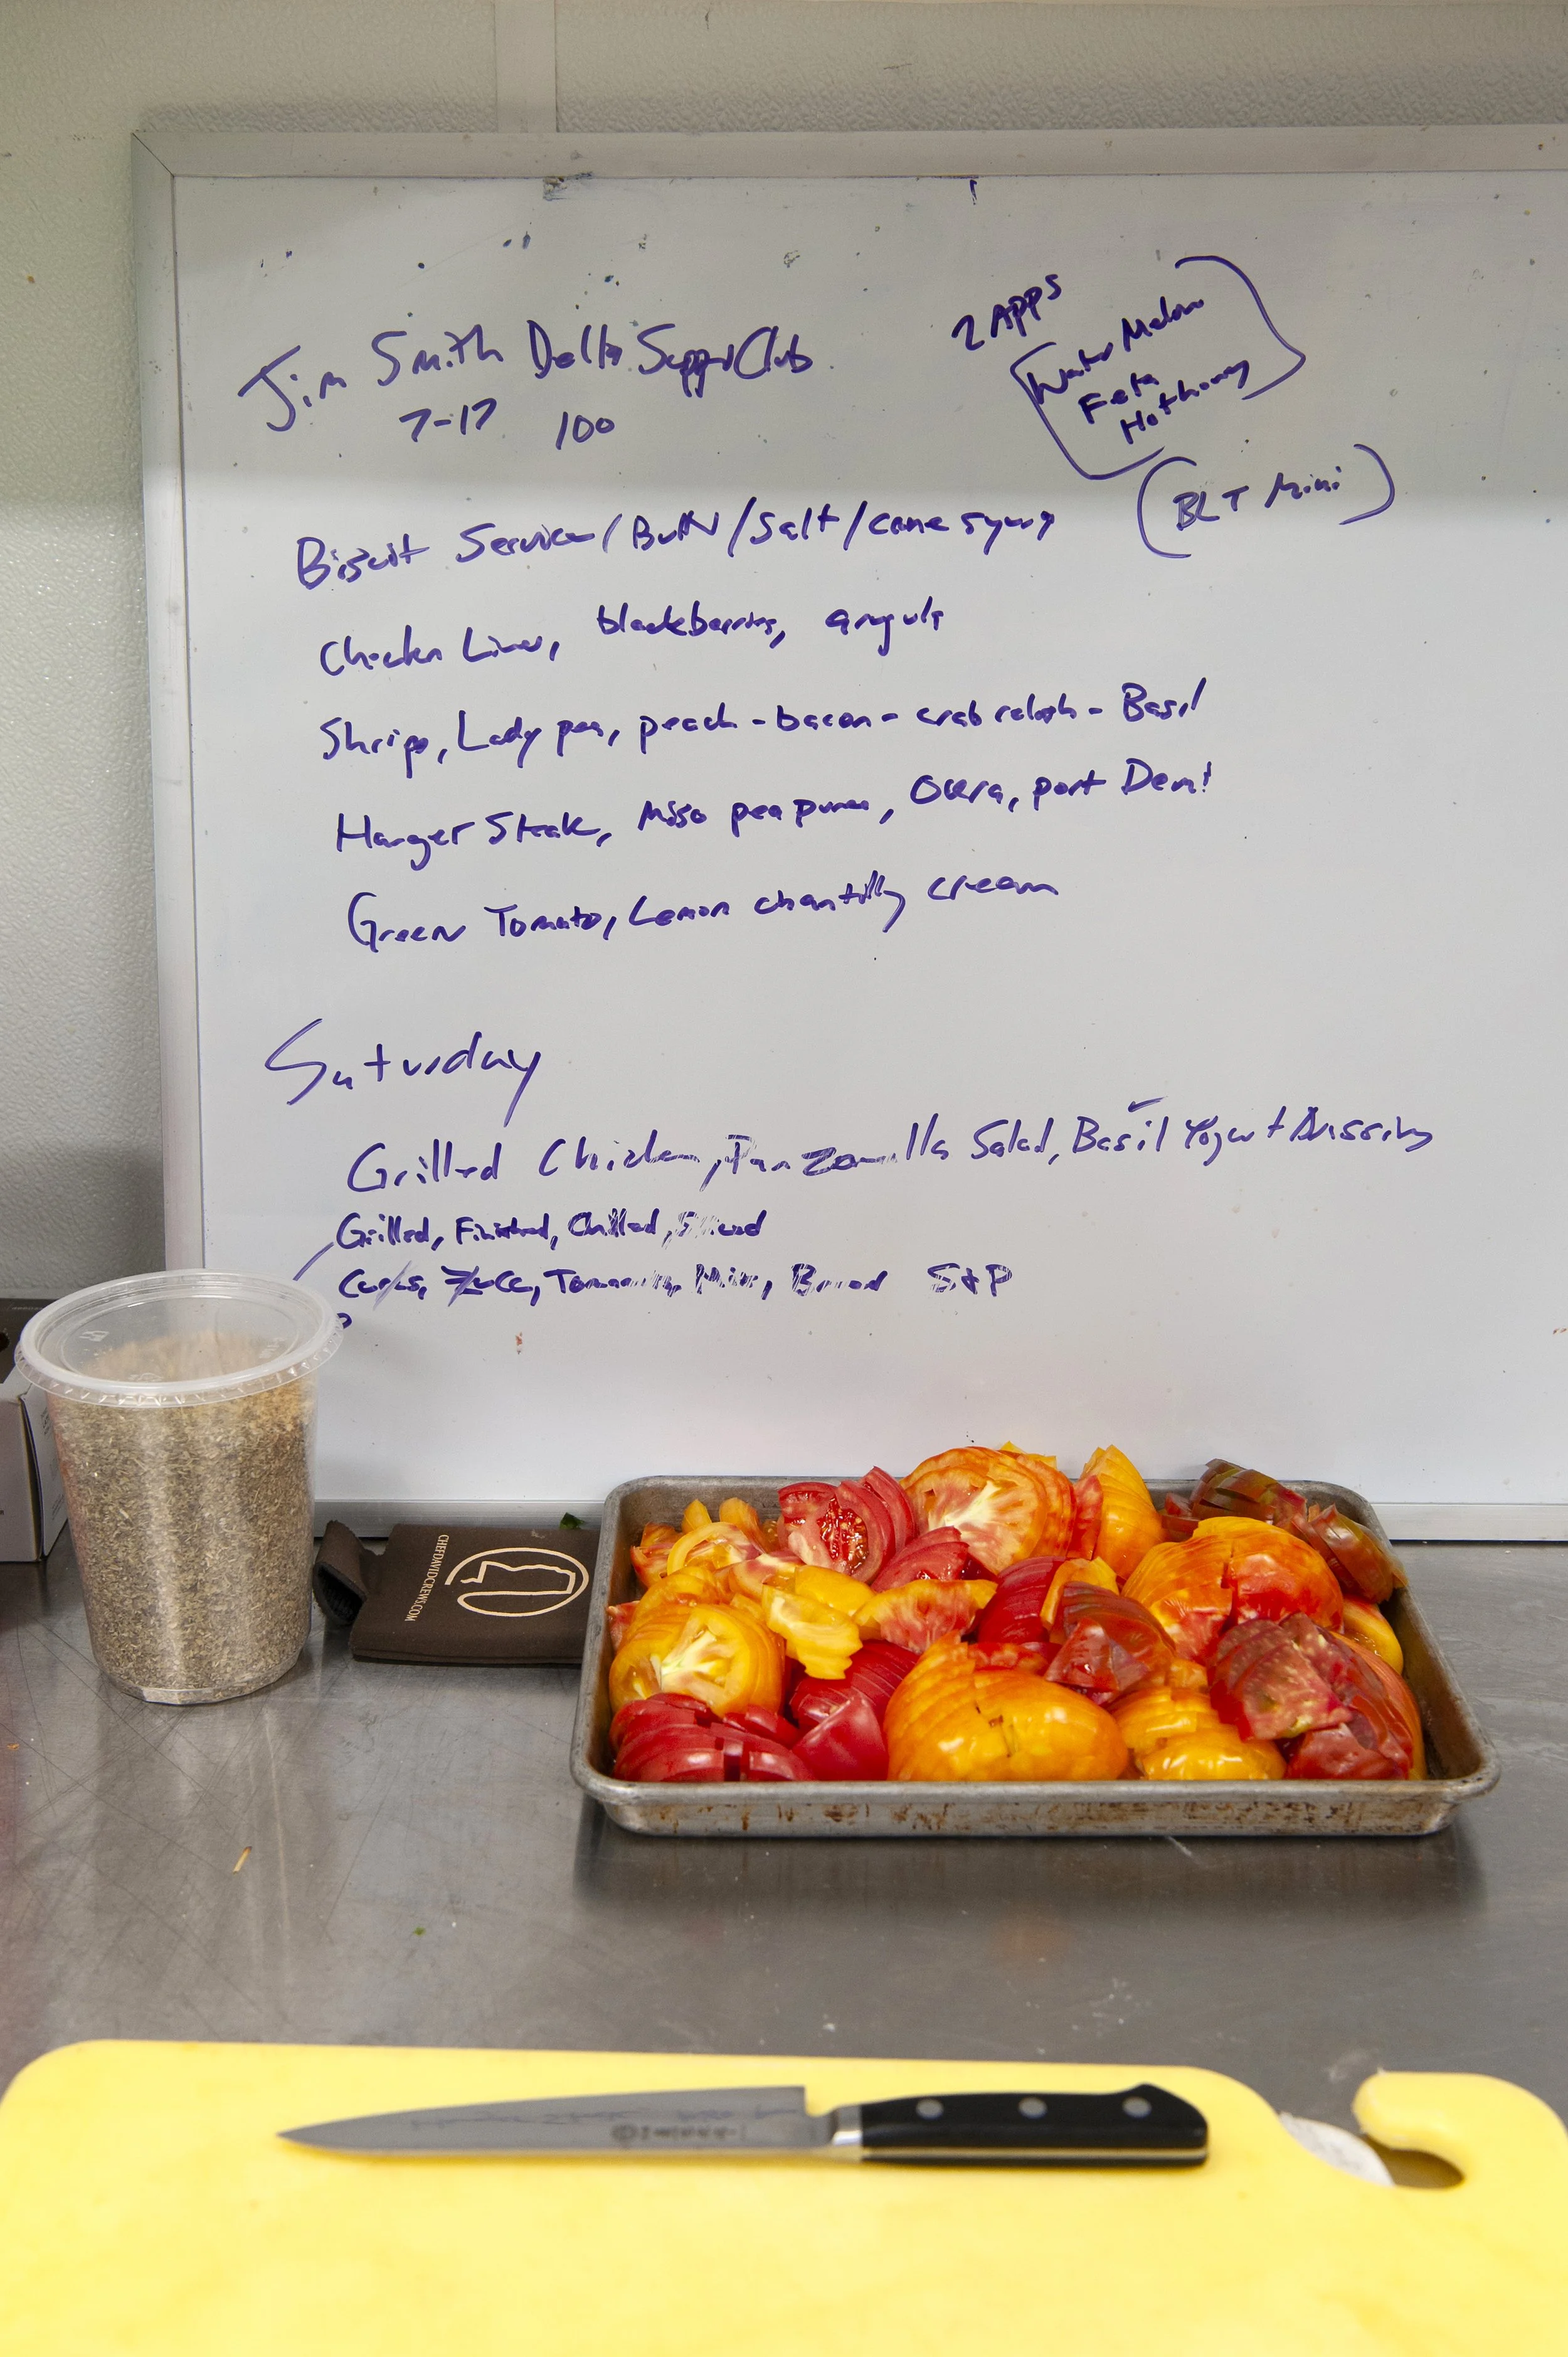 Jim Smith Delta Supper Club
7-17 100
2 APPS
Water Melon
Feta
Hot honey
(BLT Mini)
Biscuit Service/Butter/Salt/cane syrup
Chicken Liver, blackberries, arugula
Shrimp, Lady pea, peach-bacon-crab relish-Basil
Hanger Steak, Miso pea puree, Okra, port Demi
Green Tomato, Lemon chantilly cream
Saturday
Grilled Chicken, Panzanella Salad, Basil Yogurt Dressing
Grilled, Finished, Chilled, Sliced
Cukes, Zucc, Tomatoes, Mix, Bread S+P
CHEFDAVIDCREWS.COM